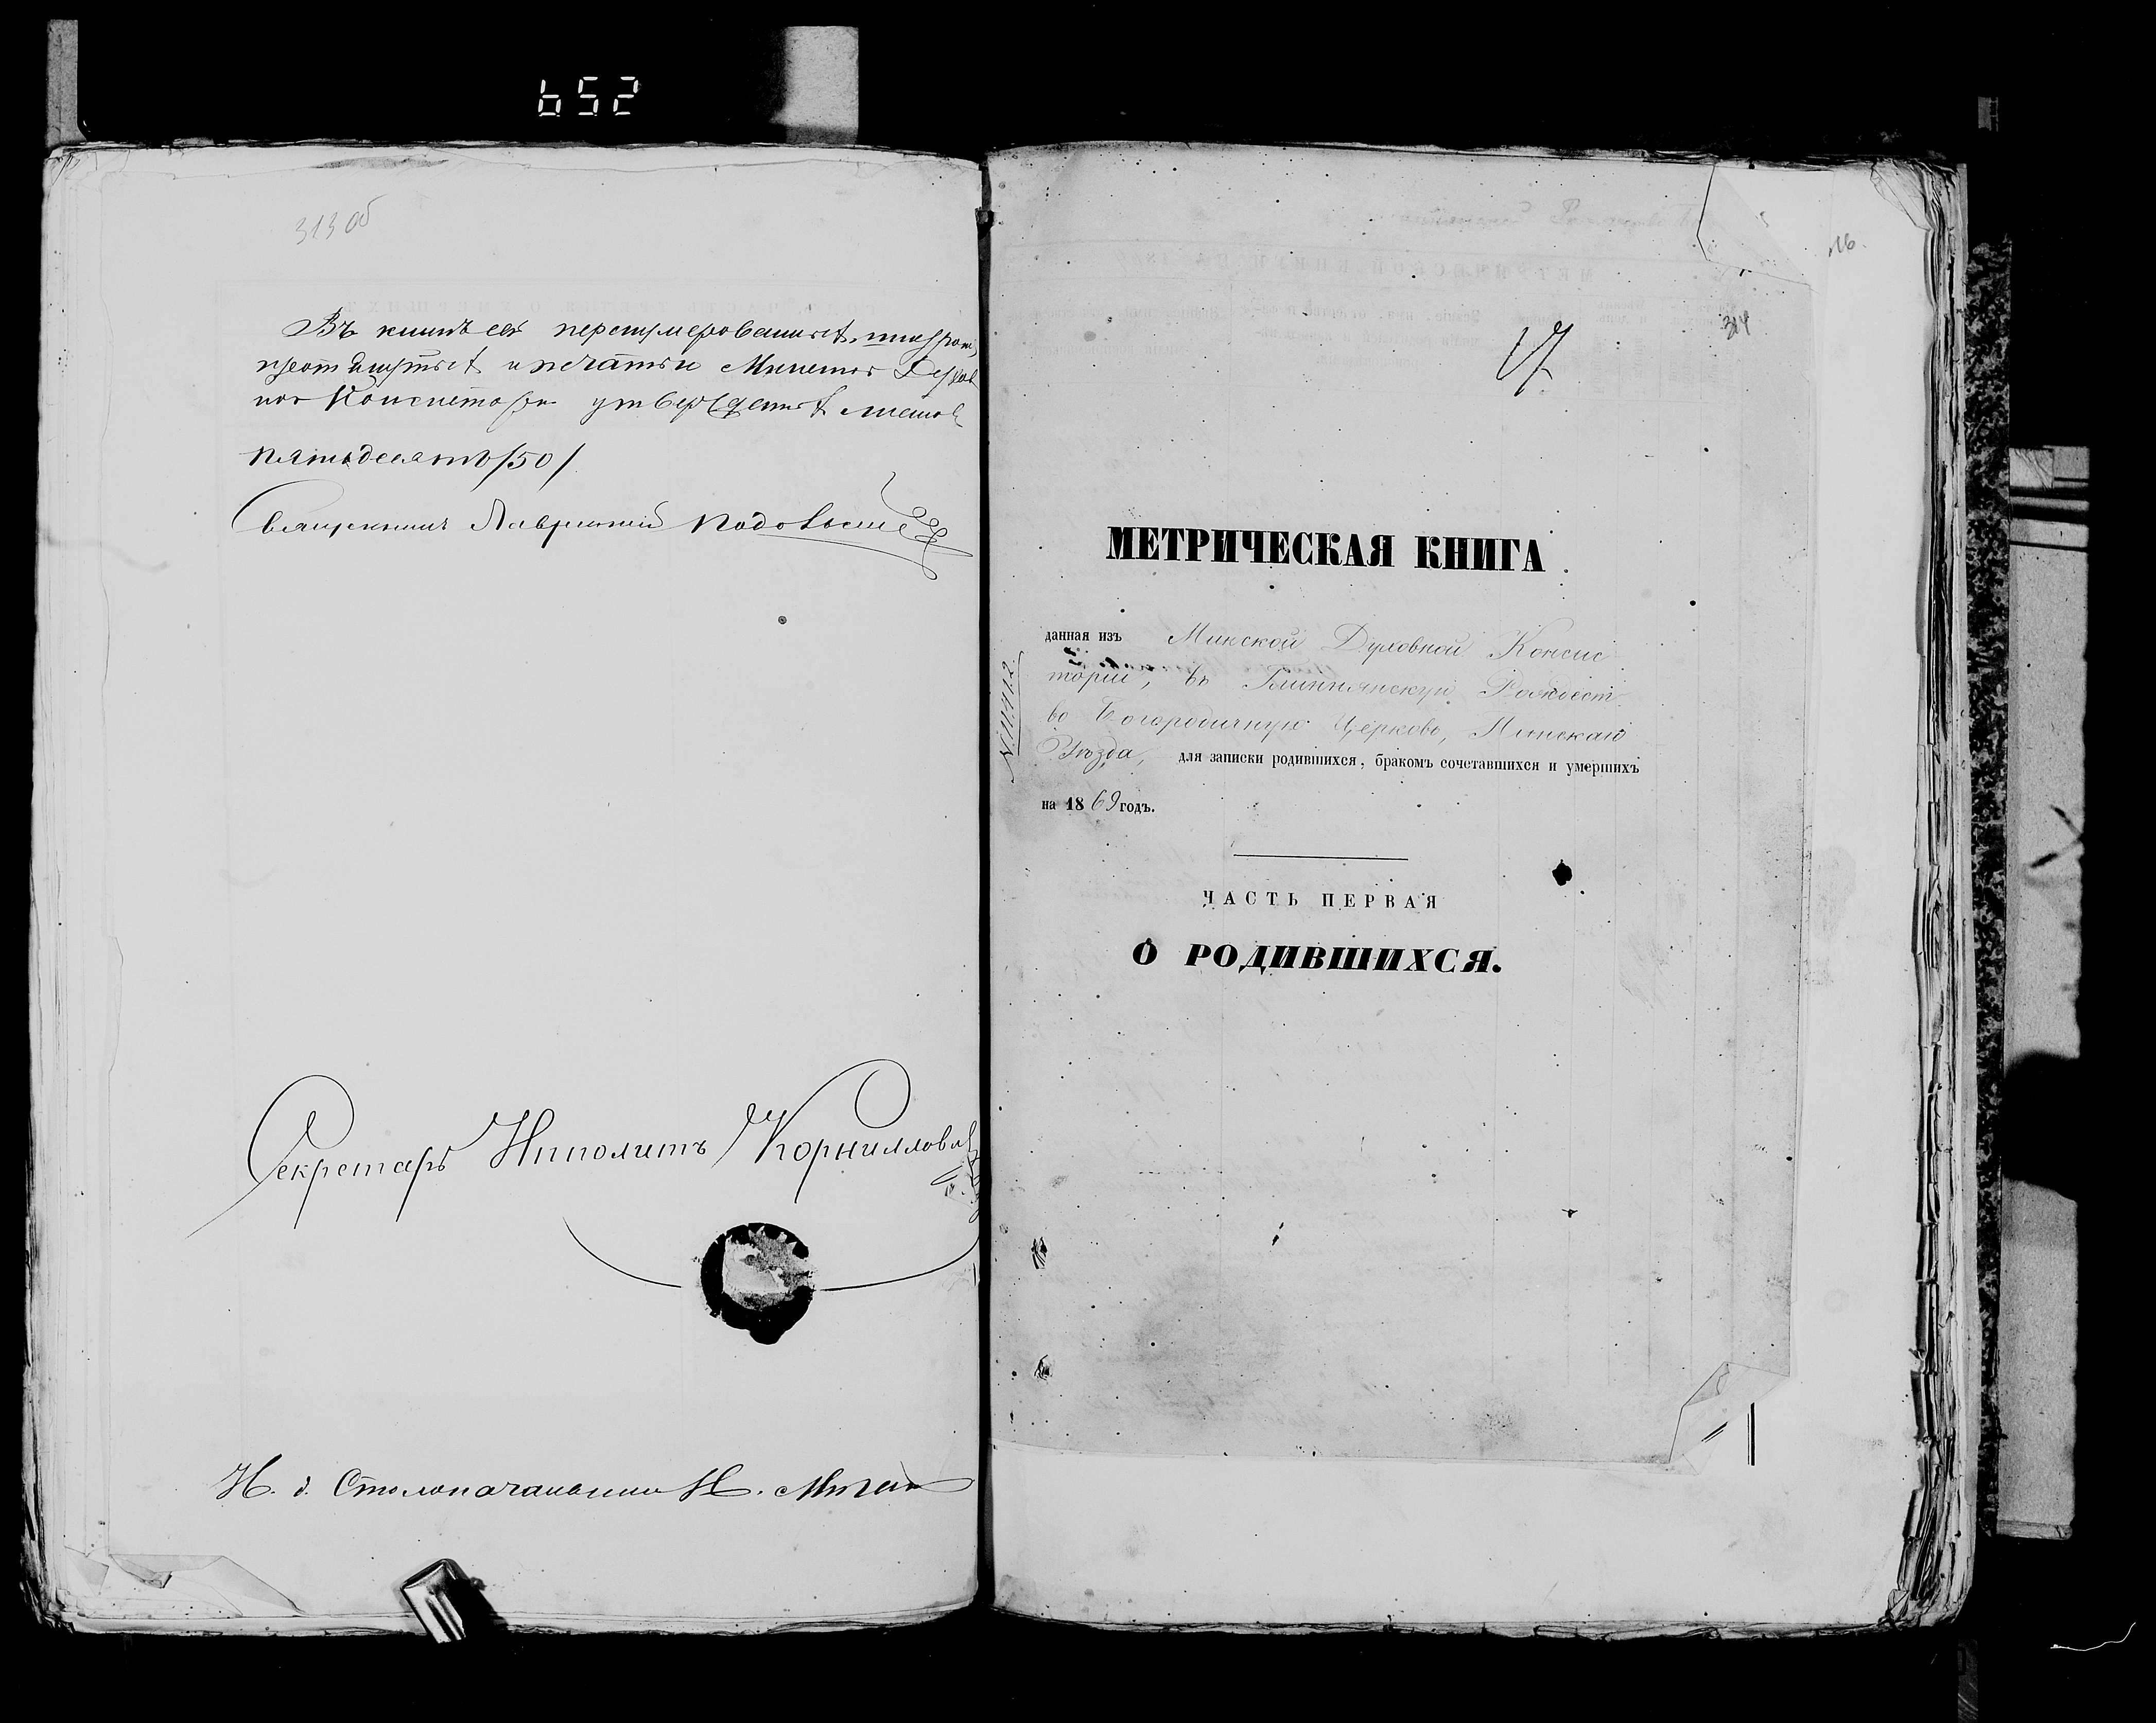 652
313 об
Въ книгѣ сей перенумерованныхъ, прошнурованныхъ
и печатью Минской Духов
ной Консисторіи утвержденныхъ листовъ
пятьдесятъ /50/
Священникъ Лаврентій
Секретарь Ипполитъ Корниллович
И. д. Столоначальника
16.
314
17
МЕТРИЧЕСКАЯ КНИГА
данная изъ Минской Духовной Консис
торіи, въ Рождест
во Богородичную Церковь, Пинскаго
Уѣзда, для записки родившихся, бракомъ сочетавшихся и умершихъ
на 1869 годъ.
N. 11412
ЧАСТЬ ПЕРВАЯ
О РОДИВШИХСЯ.